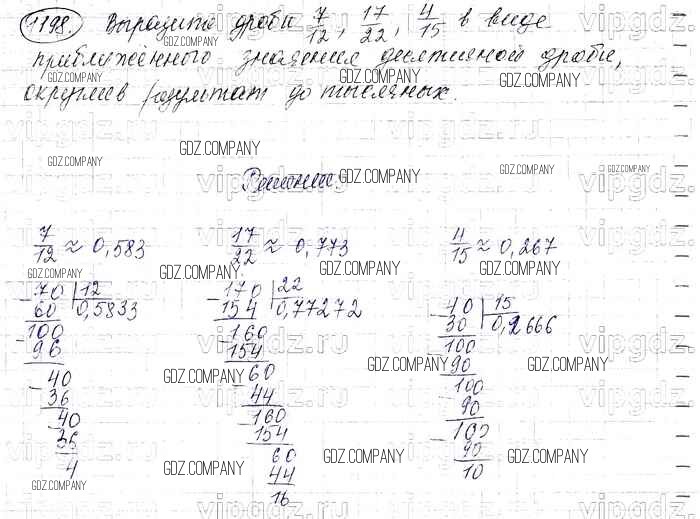 1198. Выразите дроби 7/12, 17/22, 4/15 в виде
приближённого значения десятичной дроби,
округлив результат до тысячных.
Решение
7/12 ≈ 0,583
70 | 12
60 0,5833
100
96
40
36
40
36
4
17/22 ≈ 0,773
170 | 22
154 0,77272
160
154
60
44
160
154
60
44
16
4/15 ≈ 0,267
40 | 15
30 0,2666
100
90
100
90
100
90
10
GDZ.COMPANY
vipgdz.ru